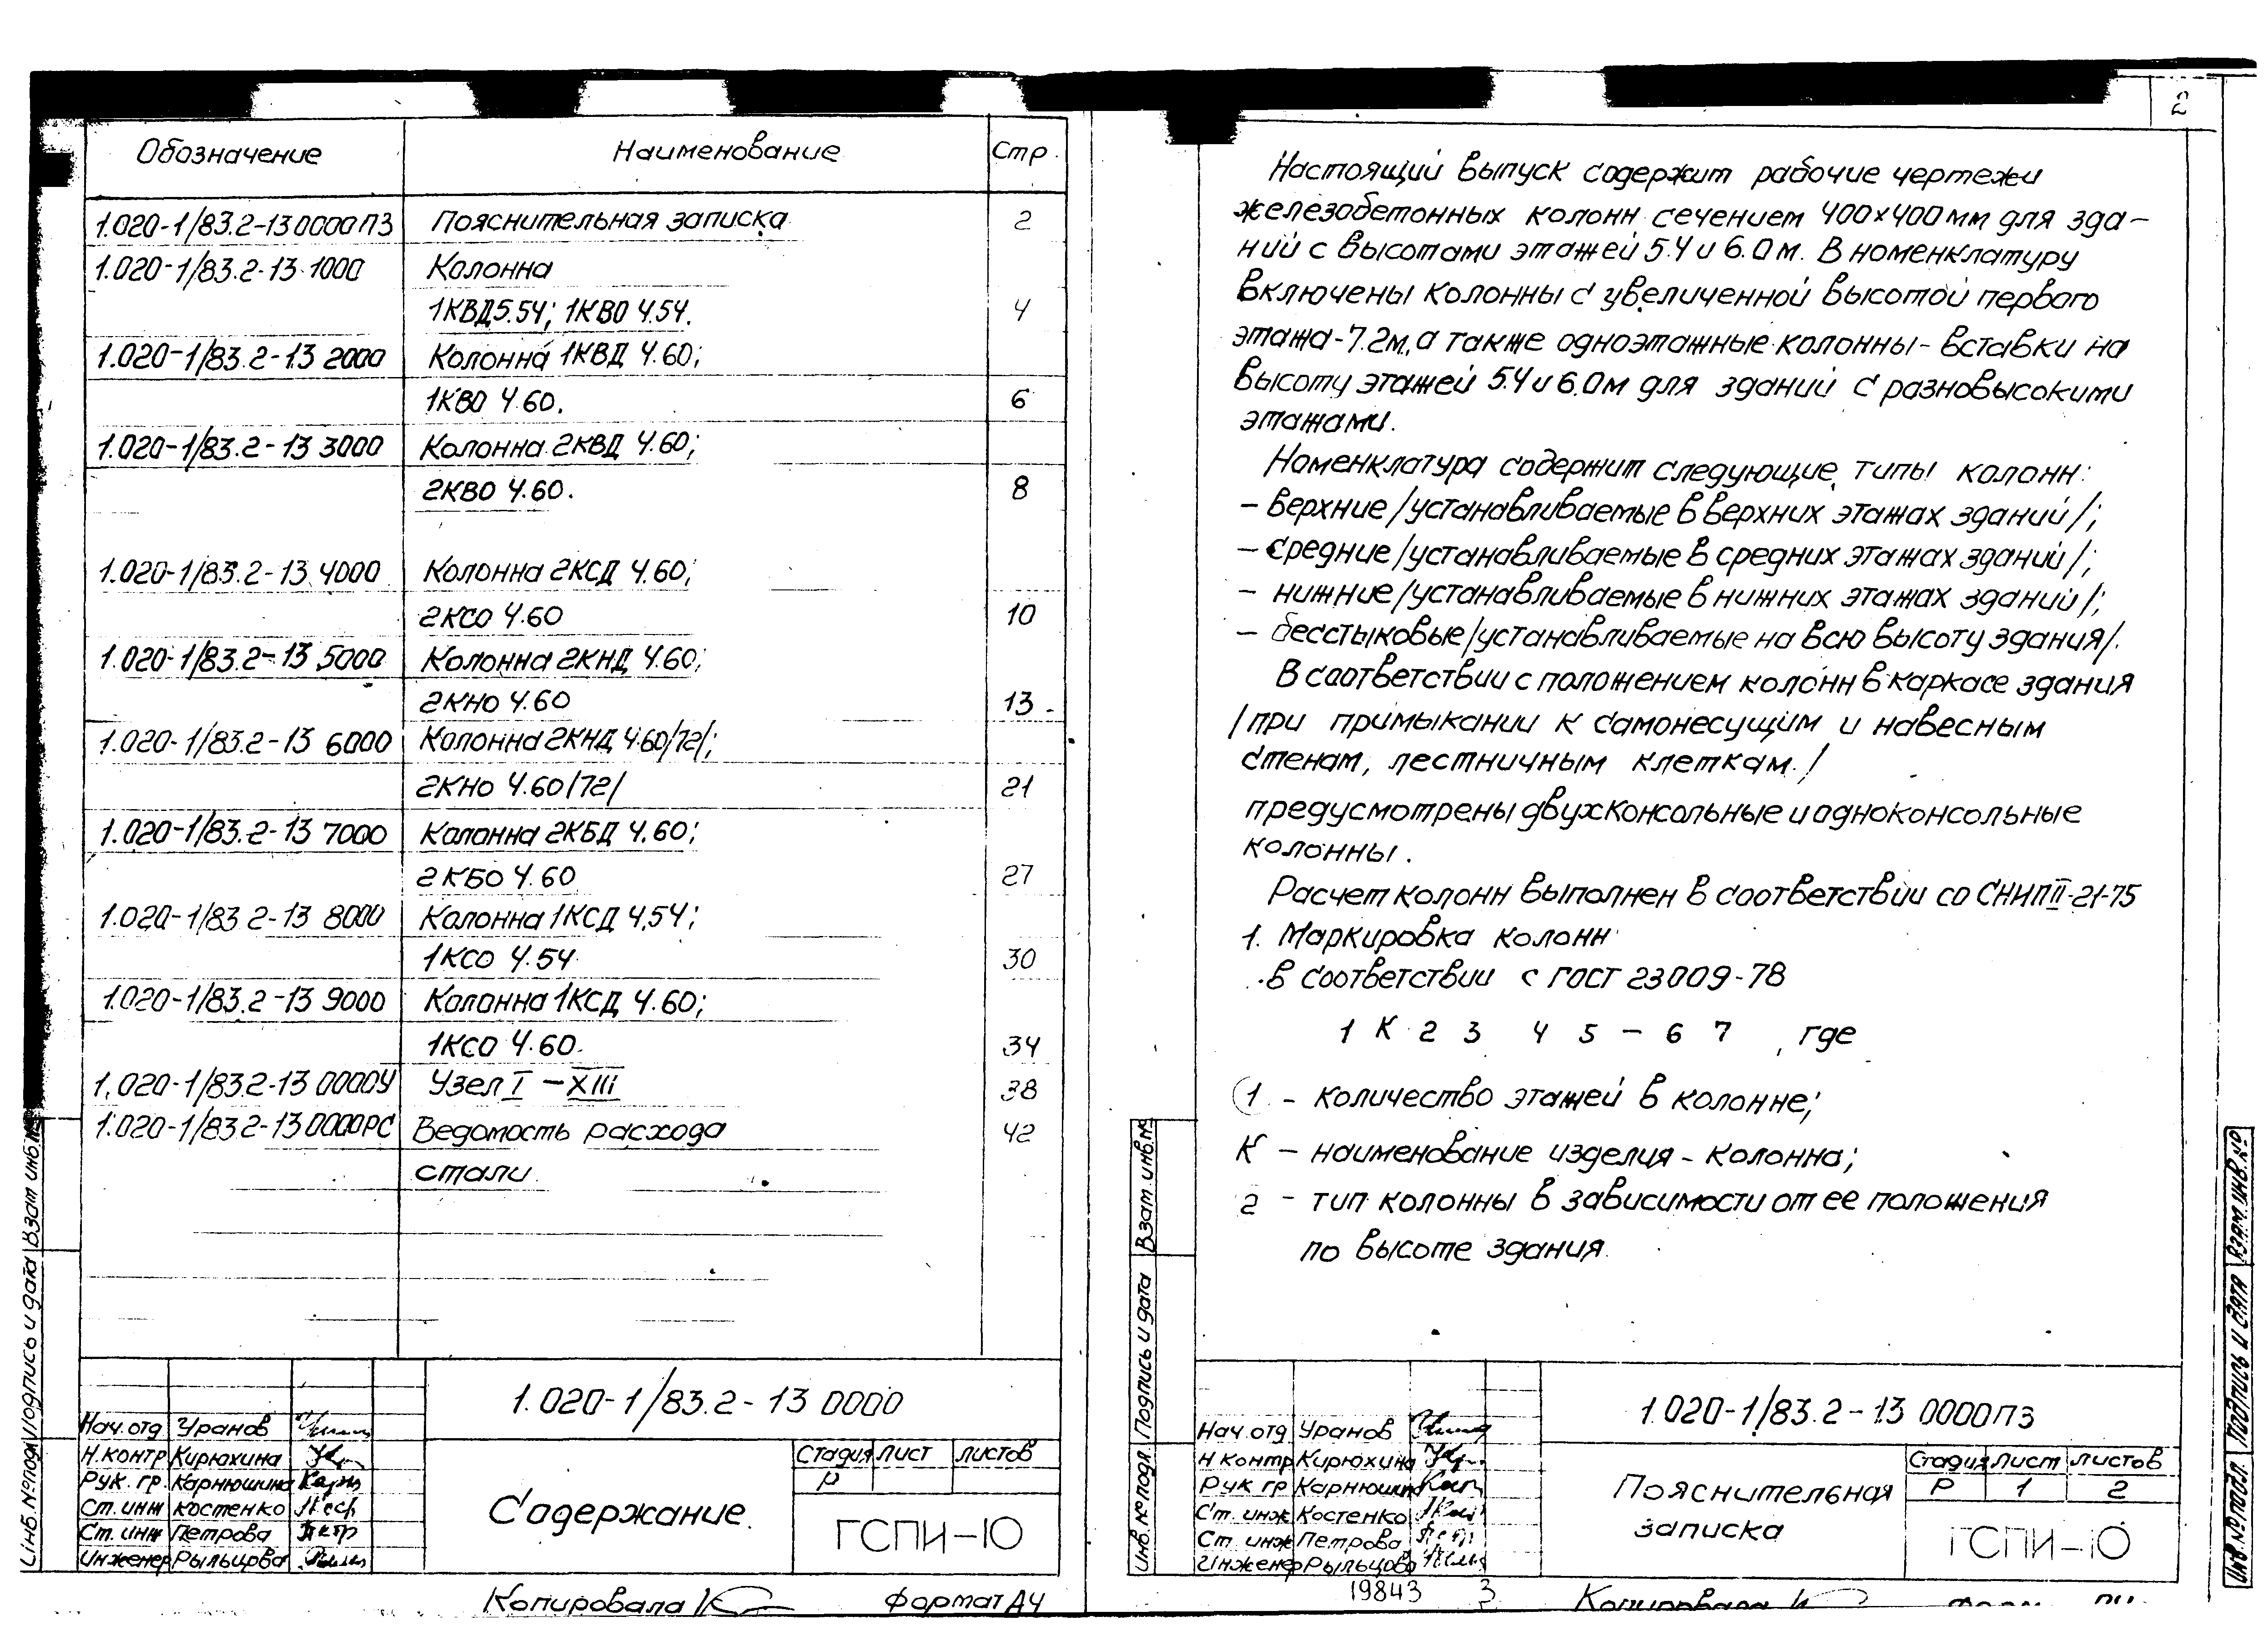 Обозначение Наименование Стр.
1.020-1/83.2-13 0000ПЗ Пояснительная записка 2
1.020-1/83.2-13 1000 Колонна
1КВД5.54; 1КВО 4.54. 4
1.020-1/83.2-13 2000 Колонна 1КВД 4.60;
1КВО 4.60. 6
1.020-1/83.2-13 3000 Колонна 2КВД 4.60;
2КВО 4.60. 8
1.020-1/83.2-13 4000 Колонна 2КСД 4.60;
2КСО 4.60 10
1.020-1/83.2-13 5000 Колонна 2КНД 4.60;
2КНО 4.60 13
1.020-1/83.2-13 6000 Колонна 2КНД 4.60/72/;
2КНО 4.60/72/ 21
1.020-1/83.2-13 7000 Колонна 2КБД 4.60;
2КБО 4.60 27
1.020-1/83.2-13 8000 Колонна 1КСД 4,54;
1КСО 4.54 30
1.020-1/83.2-13 9000 Колонна 1КСД 4.60;
1КСО 4.60. 34
1.020-1/83.2-13 0000У Узел I – XIII 38
1.020-1/83.2-13 0000РС Ведомость расхода 42
стали
1.020-1/83.2-13 0000
Нач.отд Уранов
Н.контр Кирюхина
Рук. гр. Карнюшина
Ст. инж Костенко
Ст. инж Петрова
Инженер Рыльцова
Содержание.
Стадия Лист Листов
Р
ГСПИ-10
Копировала
Формат А4
Инв.№подл Подпись и дата Взам инв.№
2
Настоящий выпуск содержит рабочие чертежи
железобетонных колонн сечением 400×400мм для зда-
ний с высотами этажей 5.4 и 6.0м. В номенклатуру
включены колонны с увеличенной высотой первого
этажа-7.2м, а также одноэтажные колонны-вставки на
высоту этажей 5.4 и 6.0м для зданий с разновысокими
этажами.
Номенклатура содержит следующие типы колонн:
– верхние /устанавливаемые в верхних этажах зданий/;
– средние /устанавливаемые в средних этажах зданий/;
– нижние /устанавливаемые в нижних этажах зданий/;
– бесстыковые /устанавливаемые на всю высоту здания/.
В соответствии с положением колонн в каркасе здания
/при примыкании к самонесущим и навесным
стенам, лестничным клеткам./
предусмотрены двухконсольные и одноконсольные
колонны.
Расчет колонн выполнен в соответствии со СНИП II-21-75
1. Маркировка колонн
в соответствии с ГОСТ 23009-78
1 К 2 3 4 5 – 6 7 , где
1 – количество этажей в колонне;
К – наименование изделия – колонна;
2 – тип колонны в зависимости от ее положения
по высоте здания.
1.020-1/83.2-13 0000ПЗ
Нач.отд Уранов
Н контр Кирюхина
Рук гр Карнюшин
Ст. инж Костенко
Ст. инж Петрова
Инженер Рыльцова
Пояснительная
записка
Стадия Лист Листов
Р 1 2
ГСПИ-10
19843 3
Копировала
Инв.№подл Подпись и дата Взам инв.№
Инв.№подл. Подпись и дата Взам.инв.№